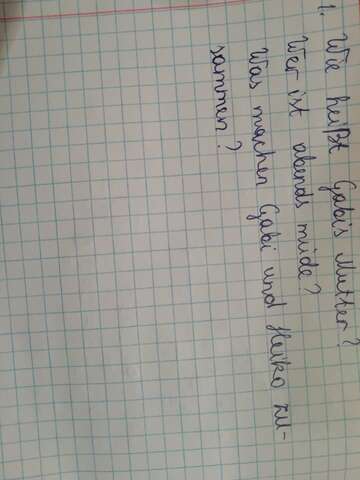 1. Wie heißt Gabis Mutter?
Wer ist abends müde?
Was machen Gabi und Heiko zu-
sammen?